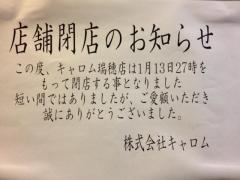 店舗閉店のお知らせ
この度、キャロム瑞穂店は1月13日27時を
もって閉店する事となりました
短い間ではありましたが、ご愛顧いただき
誠にありがとうございました。
株式会社キャロム